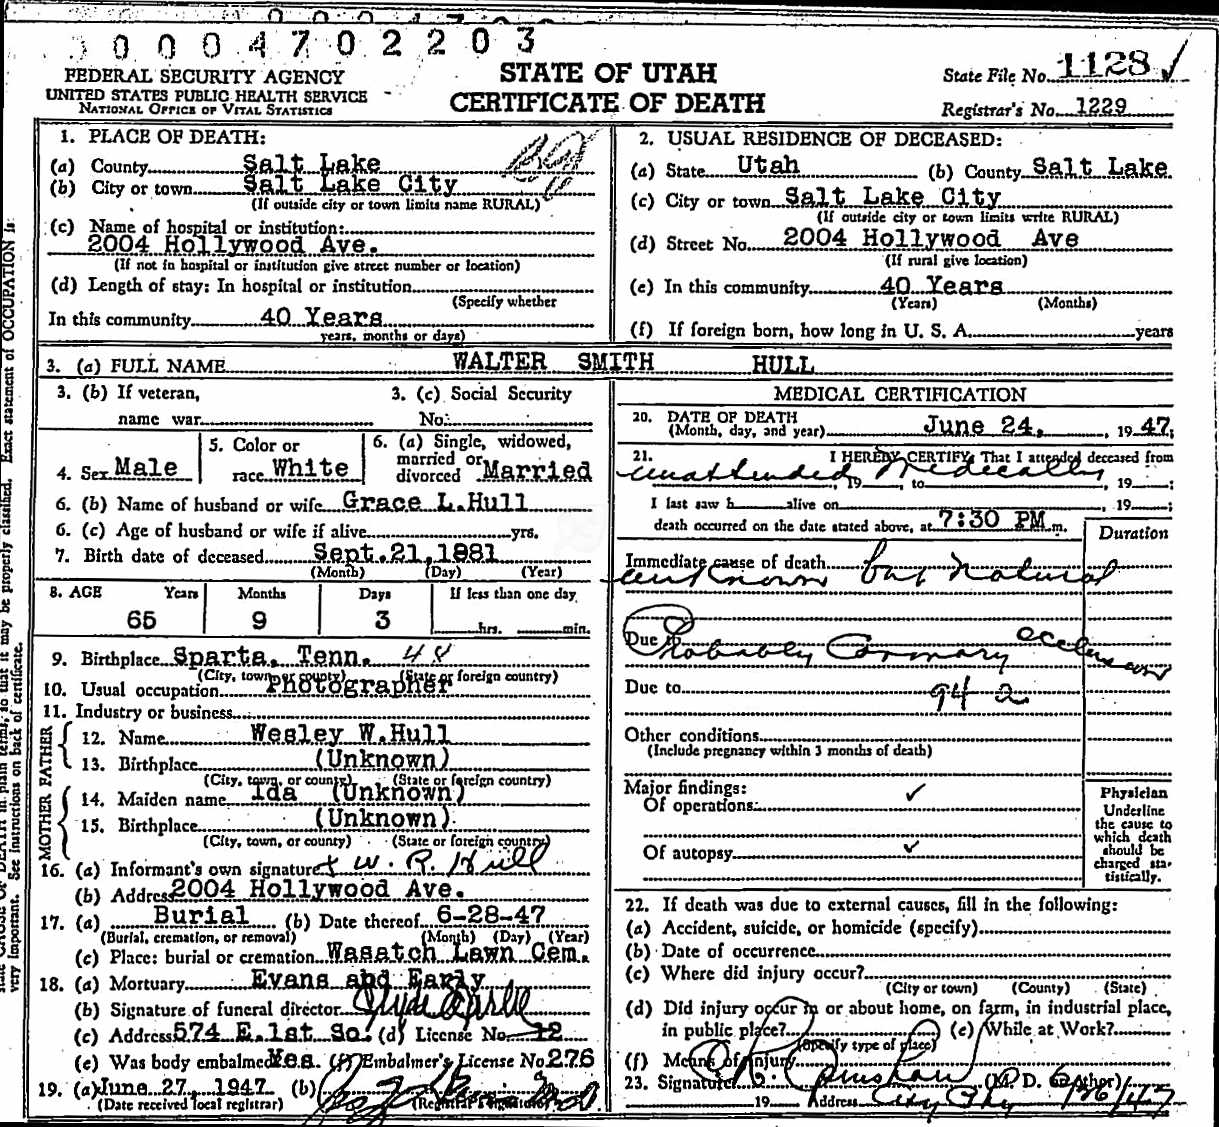 0 0 0 4 7 0 2 2 0 3
FEDERAL SECURITY AGENCY
UNITED STATES PUBLIC HEALTH SERVICE
NATIONAL OFFICE OF VITAL STATISTICS
STATE OF UTAH
CERTIFICATE OF DEATH
State File No. 1128 ✓
Registrar's No. 1229
1. PLACE OF DEATH:
(a) County Salt Lake
(b) City or town Salt Lake City
(If outside city or town limits name RURAL)
(c) Name of hospital or institution:
2004 Hollywood Ave.
(If not in hospital or institution give street number or location)
(d) Length of stay: In hospital or institution
(Specify whether
In this community 40 Years
years, months or days)
2. USUAL RESIDENCE OF DECEASED:
(a) State Utah (b) County Salt Lake
(c) City or town Salt Lake City
(If outside city or town limits write RURAL)
(d) Street No. 2004 Hollywood Ave
(If rural give location)
(e) In this community 40 Years
(Years) (Months)
(f) If foreign born, how long in U. S. A. years
3. (a) FULL NAME WALTER SMITH HULL
3. (b) If veteran,
name war
3. (c) Social Security
No.
4. Sex Male
5. Color or
race White
6. (a) Single, widowed,
married or
divorced Married
6. (b) Name of husband or wife Grace L.Hull
6. (c) Age of husband or wife if alive yrs.
7. Birth date of deceased Sept.21,1881
(Month) (Day) (Year)
8. AGE Years Months Days If less than one day
65 9 3 hrs. min.
9. Birthplace Sparta, Tenn. 48
(City, town, or county) (State or foreign country)
10. Usual occupation Photographer
11. Industry or business
FATHER
12. Name Wesley W.Hull
13. Birthplace (Unknown)
(City, town, or county) (State or foreign country)
MOTHER
14. Maiden name Ida (Unknown)
15. Birthplace (Unknown)
(City, town, or county) (State or foreign country)
16. (a) Informant's own signature x W. R. Hull
(b) Address 2004 Hollywood Ave.
17. (a) Burial (b) Date thereof 6-28-47
(Burial, cremation, or removal) (Month) (Day) (Year)
(c) Place: burial or cremation Wasatch Lawn Cem.
18. (a) Mortuary Evans and Early
(b) Signature of funeral director Clyde Early
(c) Address 574 E.1st So. (d) License No. 12
(e) Was body embalmed Yes. (f) Embalmer's License No 276
19. (a) June 27, 1947 (b)
(Date received local registrar) (Registrar's signature)
MEDICAL CERTIFICATION
20. DATE OF DEATH
(Month, day, and year) June 24, , 1947;
21. I HEREBY CERTIFY, That I attended deceased from
unattended medically , 19 , to , 19 ;
I last saw h alive on , 19 ;
death occurred on the date stated above, at 7:30 PM m.
Duration
Immediate cause of death
unknown but natural
Due to
Probably Coronary occlusion
Due to 94 a
Other conditions
(Include pregnancy within 3 months of death)
Major findings:
Of operations ✓
Of autopsy ✓
Physician
Underline
the cause to
which death
should be
charged sta-
tistically.
22. If death was due to external causes, fill in the following:
(a) Accident, suicide, or homicide (specify)
(b) Date of occurrence
(c) Where did injury occur?
(City or town) (County) (State)
(d) Did injury occur in or about home, on farm, in industrial place,
in public place? (e) While at Work?
(Specify type of place)
(f) Means of injury
23. Signature (M. D. or other)
19 Address City Phy 6/26/47
Exact statement of OCCUPATION is
be properly classified.
in plain terms, so that it may
very important. See instructions on back of certificate.